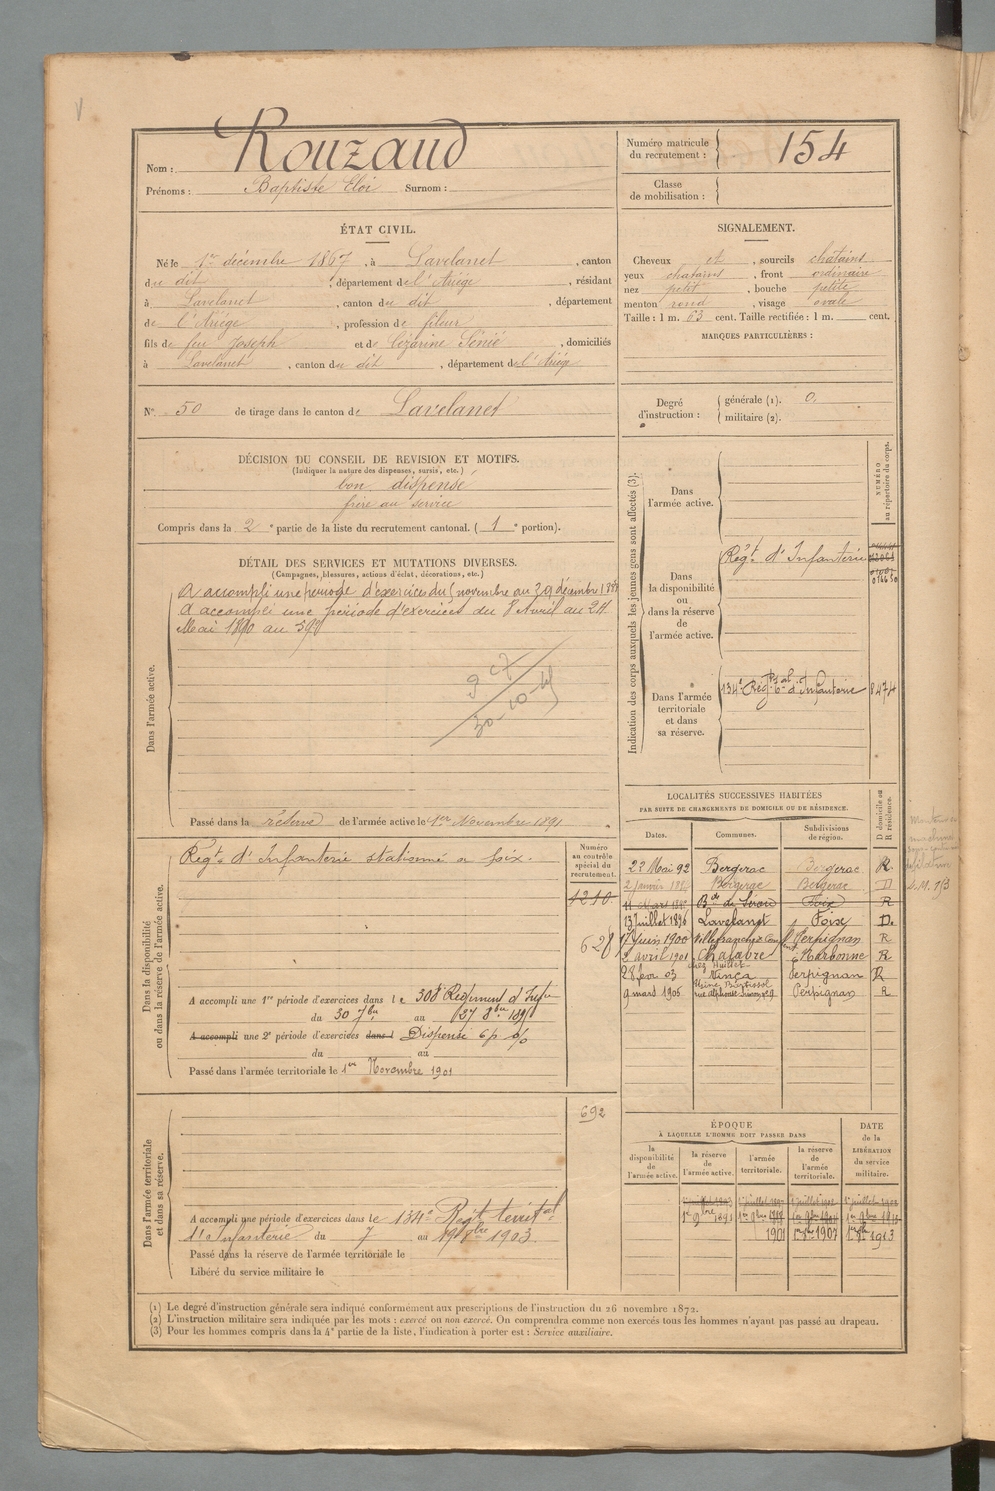 Nom : Rouzaud
Prénoms : Baptiste Eloi Surnom :
Numéro matricule du recrutement : 154
Classe de mobilisation :
ÉTAT CIVIL.
Né le 1er décembre 1867, à Lavelanet, canton
du dit, département de l'Ariège, résidant
à Lavelanet, canton du dit, département
de l'Ariège, profession de fileur
fils de feu Joseph et de Cézarine Sénié, domiciliés
à Lavelanet, canton du dit, département de l'Ariège
N° 50 de tirage dans le canton de Lavelanet
SIGNALEMENT.
Cheveux et, sourcils chatains
yeux chatains, front ordinaire
nez petit, bouche petite
menton rond, visage ovale
Taille : 1 m. 63 cent. Taille rectifiée : 1 m. cent.
MARQUES PARTICULIÈRES :
Degré d'instruction : générale (1). 0.
militaire (2).
DÉCISION DU CONSEIL DE REVISION ET MOTIFS.
(Indiquer la nature des dispenses, sursis, etc.)
bon dispensé
frère au service
Compris dans la 2e partie de la liste du recrutement cantonal. (1e portion).
DÉTAIL DES SERVICES ET MUTATIONS DIVERSES.
(Campagnes, blessures, actions d'éclat, décorations, etc.)
Dans l'armée active.
A accompli une periode d'exercice du novembre au 29 décembre
A accompli une période d'exercices du 8 Avril au
Mai 1890 au
30-10-
Passé dans la réserve de l'armée active le 1er Novembre 1891
Indication des corps auxquels les jeunes gens sont affectés (3).
NUMÉRO au répertoire du corps.
Dans l'armée active.
Dans la disponibilité ou dans la réserve de l'armée active.
Régt d'Infanterie
Dans l'armée territoriale et dans sa réserve.
134e Régt tal d'Infanterie 8474
LOCALITÉS SUCCESSIVES HABITÉES
PAR SUITE DE CHANGEMENTS DE DOMICILE OU DE RÉSIDENCE.
Dates. Communes. Subdivisions de région. D domicile ou R résidence.
22 Mai 92 Bergerac Bergerac R
2 janvier Bergerac Bergerac D
Foix R
13 Juillet 1896 Lavelanet Foix D.
17 Juin 1900 Villefranche Perpignan R
2 avril 1901 Chalabre Narbonne R
28 fev 03 Vinça Perpignan R
9 mars 1905 rue Alphonse Perpignan R
Dans la disponibilité ou dans la réserve de l'armée active.
Régt d'Infanterie stationné à Foix.
Numéro au contrôle spécial du recrutement.
1210
628
A accompli une 1re période d'exercices dans le 308 Régiment d'Infie
du 30 7bre au 27 8bre
A accompli une 2e période d'exercices dans l Dispensé
du au
Passé dans l'armée territoriale le 1er Novembre 1901
Dans l'armée territoriale et dans sa réserve.
692
A accompli une période d'exercices dans le 134e Régt territal
d'Infanterie du 7 au 19 8bre 1903
Passé dans la réserve de l'armée territoriale le
Libéré du service militaire le
ÉPOQUE
À LAQUELLE L'HOMME DOIT PASSER DANS
DATE de la LIBÉRATION du service militaire.
la disponibilité de l'armée active.
la réserve de l'armée active.
l'armée territoriale.
la réserve de l'armée territoriale.
1er 9bre 1891
1901 1907 1913
(1) Le degré d'instruction générale sera indiqué conformément aux prescriptions de l'instruction du 26 novembre 1872.
(2) L'instruction militaire sera indiquée par les mots : exercé ou non exercé. On comprendra comme non exercés tous les hommes n'ayant pas passé au drapeau.
(3) Pour les hommes compris dans la 4e partie de la liste, l'indication à porter est : Service auxiliaire.